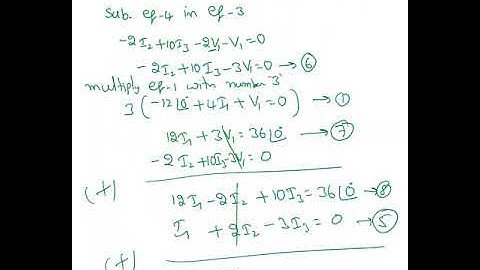 Sub. eq-4 in eq-3
-2I₂+10I₃-2V₁-V₁=0
-2I₂+10I₃-3V₁=0 → ⑥
multiply eq-1 with number '3'
3(-12∠0°+4I₁+V₁=0) → ①
12I₁+3V₁=36∠0° → ⑦
-2I₂+10I₃-3V₁=0
(+)
12I₁-2I₂+10I₃=36∠0° → ⑧
I₁+2I₂-3I₃=0 → ⑤
(+)